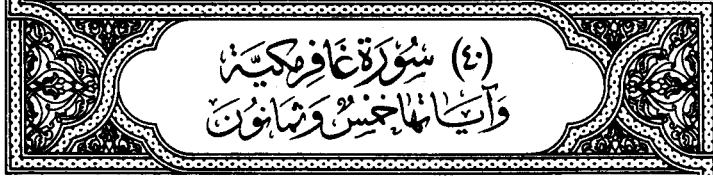 (٤٠) سُوْرَة غَافِر مَكِيَّة
وَآيَاتهَا خَمْسٌ وَثَمَانُونَ